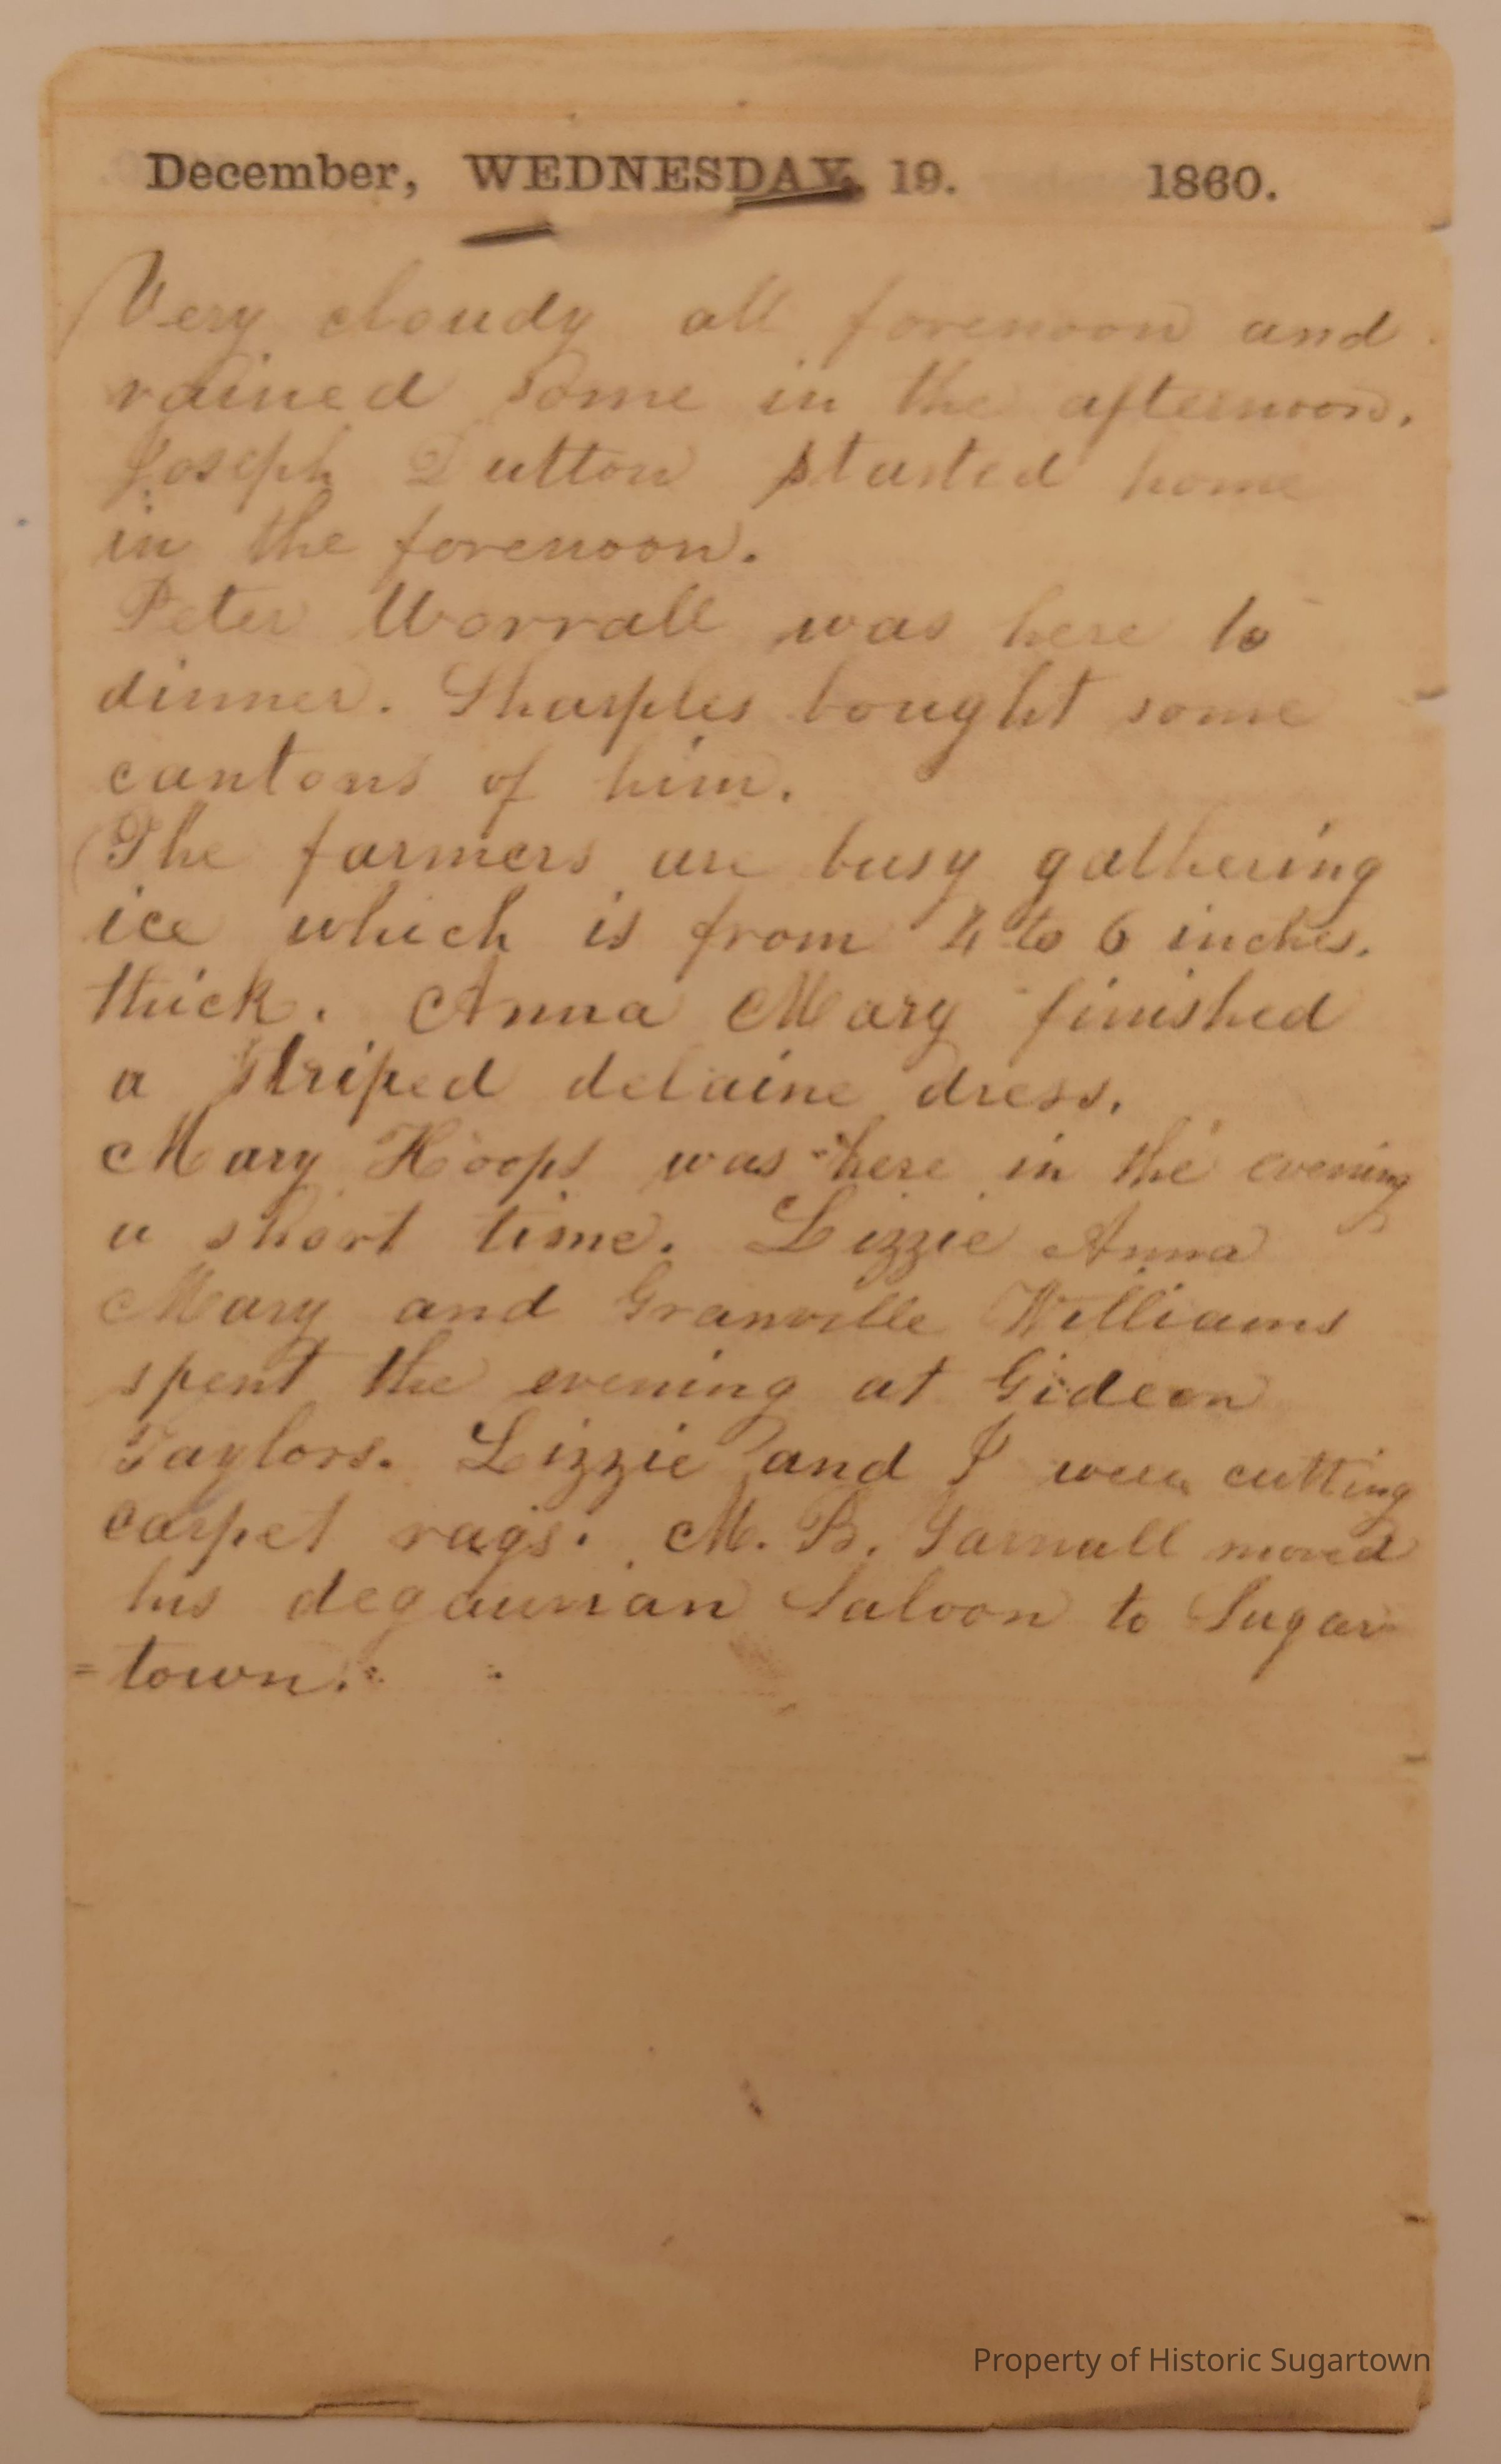 December, WEDNESDAY, 19. 1860.
Very cloudy all forenoon and
rained some in the afternoon.
Joseph Dutton started home
in the forenoon.
Peter Worrall was here to
dinner. Sharples bought some
cantons of him.
The farmers are busy gathering
ice which is from 4 to 6 inches.
thick. Anna Mary finished
a striped delaine dress.
Mary Hoops was here in the evening
a short time. Lizzie Anna
Mary and Granville Williams
spent the evening at Gideon
Taylors. Lizzie and I were cutting
carpet rags. M. B. Yarnall moved
his degaurian Saloon to Sugar
=town.
Property of Historic Sugartown